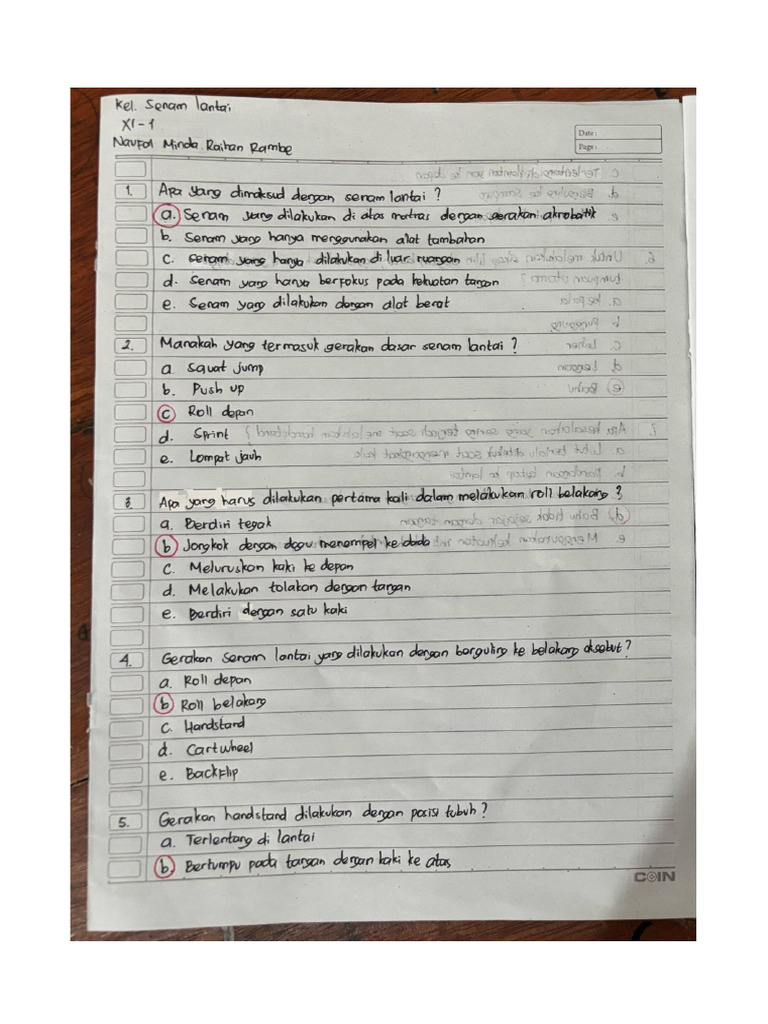 Kel. Senam lantai
XI-1
Naufal Minda Raihan Rambe
Date:
Page:
1. Apa yang dimaksud dengan senam lantai?
a. Senam yang dilakukan di atas matras dengan gerakan akrobatik
b. Senam yang hanya menggunakan alat tambahan
c. senam yang hanya dilakukan di luar ruangan
d. Senam yang hanya berfokus pada kekuatan tangan
e. Senam yang dilakukan dengan alat berat
2. Manakah yang termasuk gerakan dasar senam lantai?
a. Squat jump
b. Push up
c Roll depan
d. Sprint
e. Lompat jauh
3. Apa yang harus dilakukan pertama kali dalam melakukan roll belakang?
a. Berdiri tegak
b Jongkok dengan dagu menempel ke dada
c. Meluruskan kaki ke depan
d. Melakukan tolakan dengan tangan
e. Berdiri dengan satu kaki
4. Gerakan senam lantai yang dilakukan dengan berguling ke belakang disebut?
a. Roll depan
b Roll belakang
c. Handstand
d. Cartwheel
e. Backflip
5. Gerakan handstand dilakukan dengan posisi tubuh?
a. Terlentang di lantai
b. Bertumpu pada tangan dengan kaki ke atas
COIN